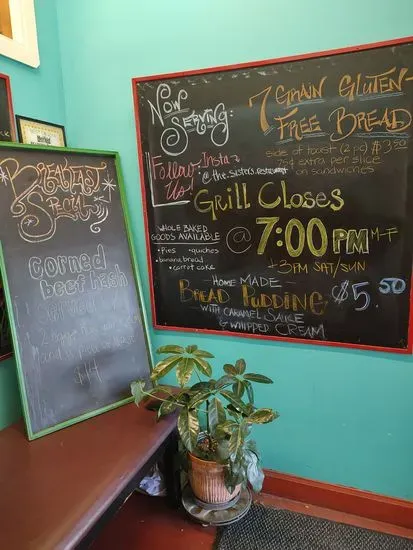 Breakfast
Special
corned
beef hash
$14
Now
Serving:
7 Grain Gluten
Free Bread
side of toast (2 pc) $3.50
75¢ extra per slice
on sandwiches
Follow Insta
Us! @the.sisters.restaurant
Grill Closes
@ 7:00 PM M-F
3PM SAT/SUN
WHOLE BAKED
GOODS AVAILABLE
• pies • quiches
• banana bread
• carrot cake
HOME MADE
Bread Pudding $5.50
WITH CARAMEL SAUCE
& WHIPPED CREAM